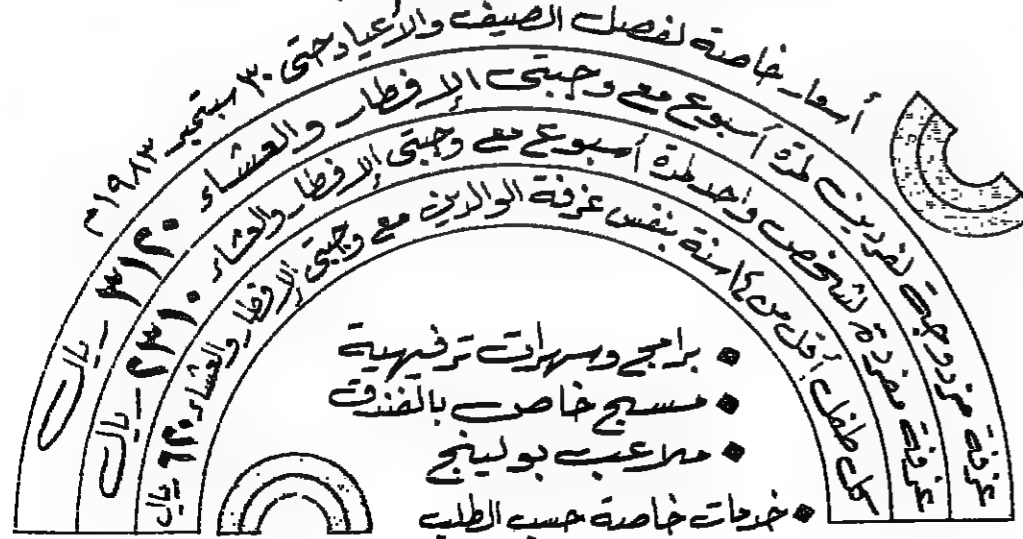 أسعار خاصة لفصل الصيف والأعياد حتى ٣٠ سبتمبر ١٩٨٣م
غرفة مزدوجة لفردين لمدة أسبوع مع وجبتى الإفطار والعشاء ٣١٢٠ ريال
غرفة مفردة لشخص واحد لمدة أسبوع مع وجبتى الإفطار والعشاء ٢٣١٠ ريال
كل طفل أقل من ١٤ سنة بنفس غرفة الوالدين مع وجبتى الإفطار والعشاء ٦٣٠ ريال
• برامج وسهرات ترفيهية
• مسبح خاص بالفندق
• ملاعب بولينج
• خدمات خاصة حسب الطلب